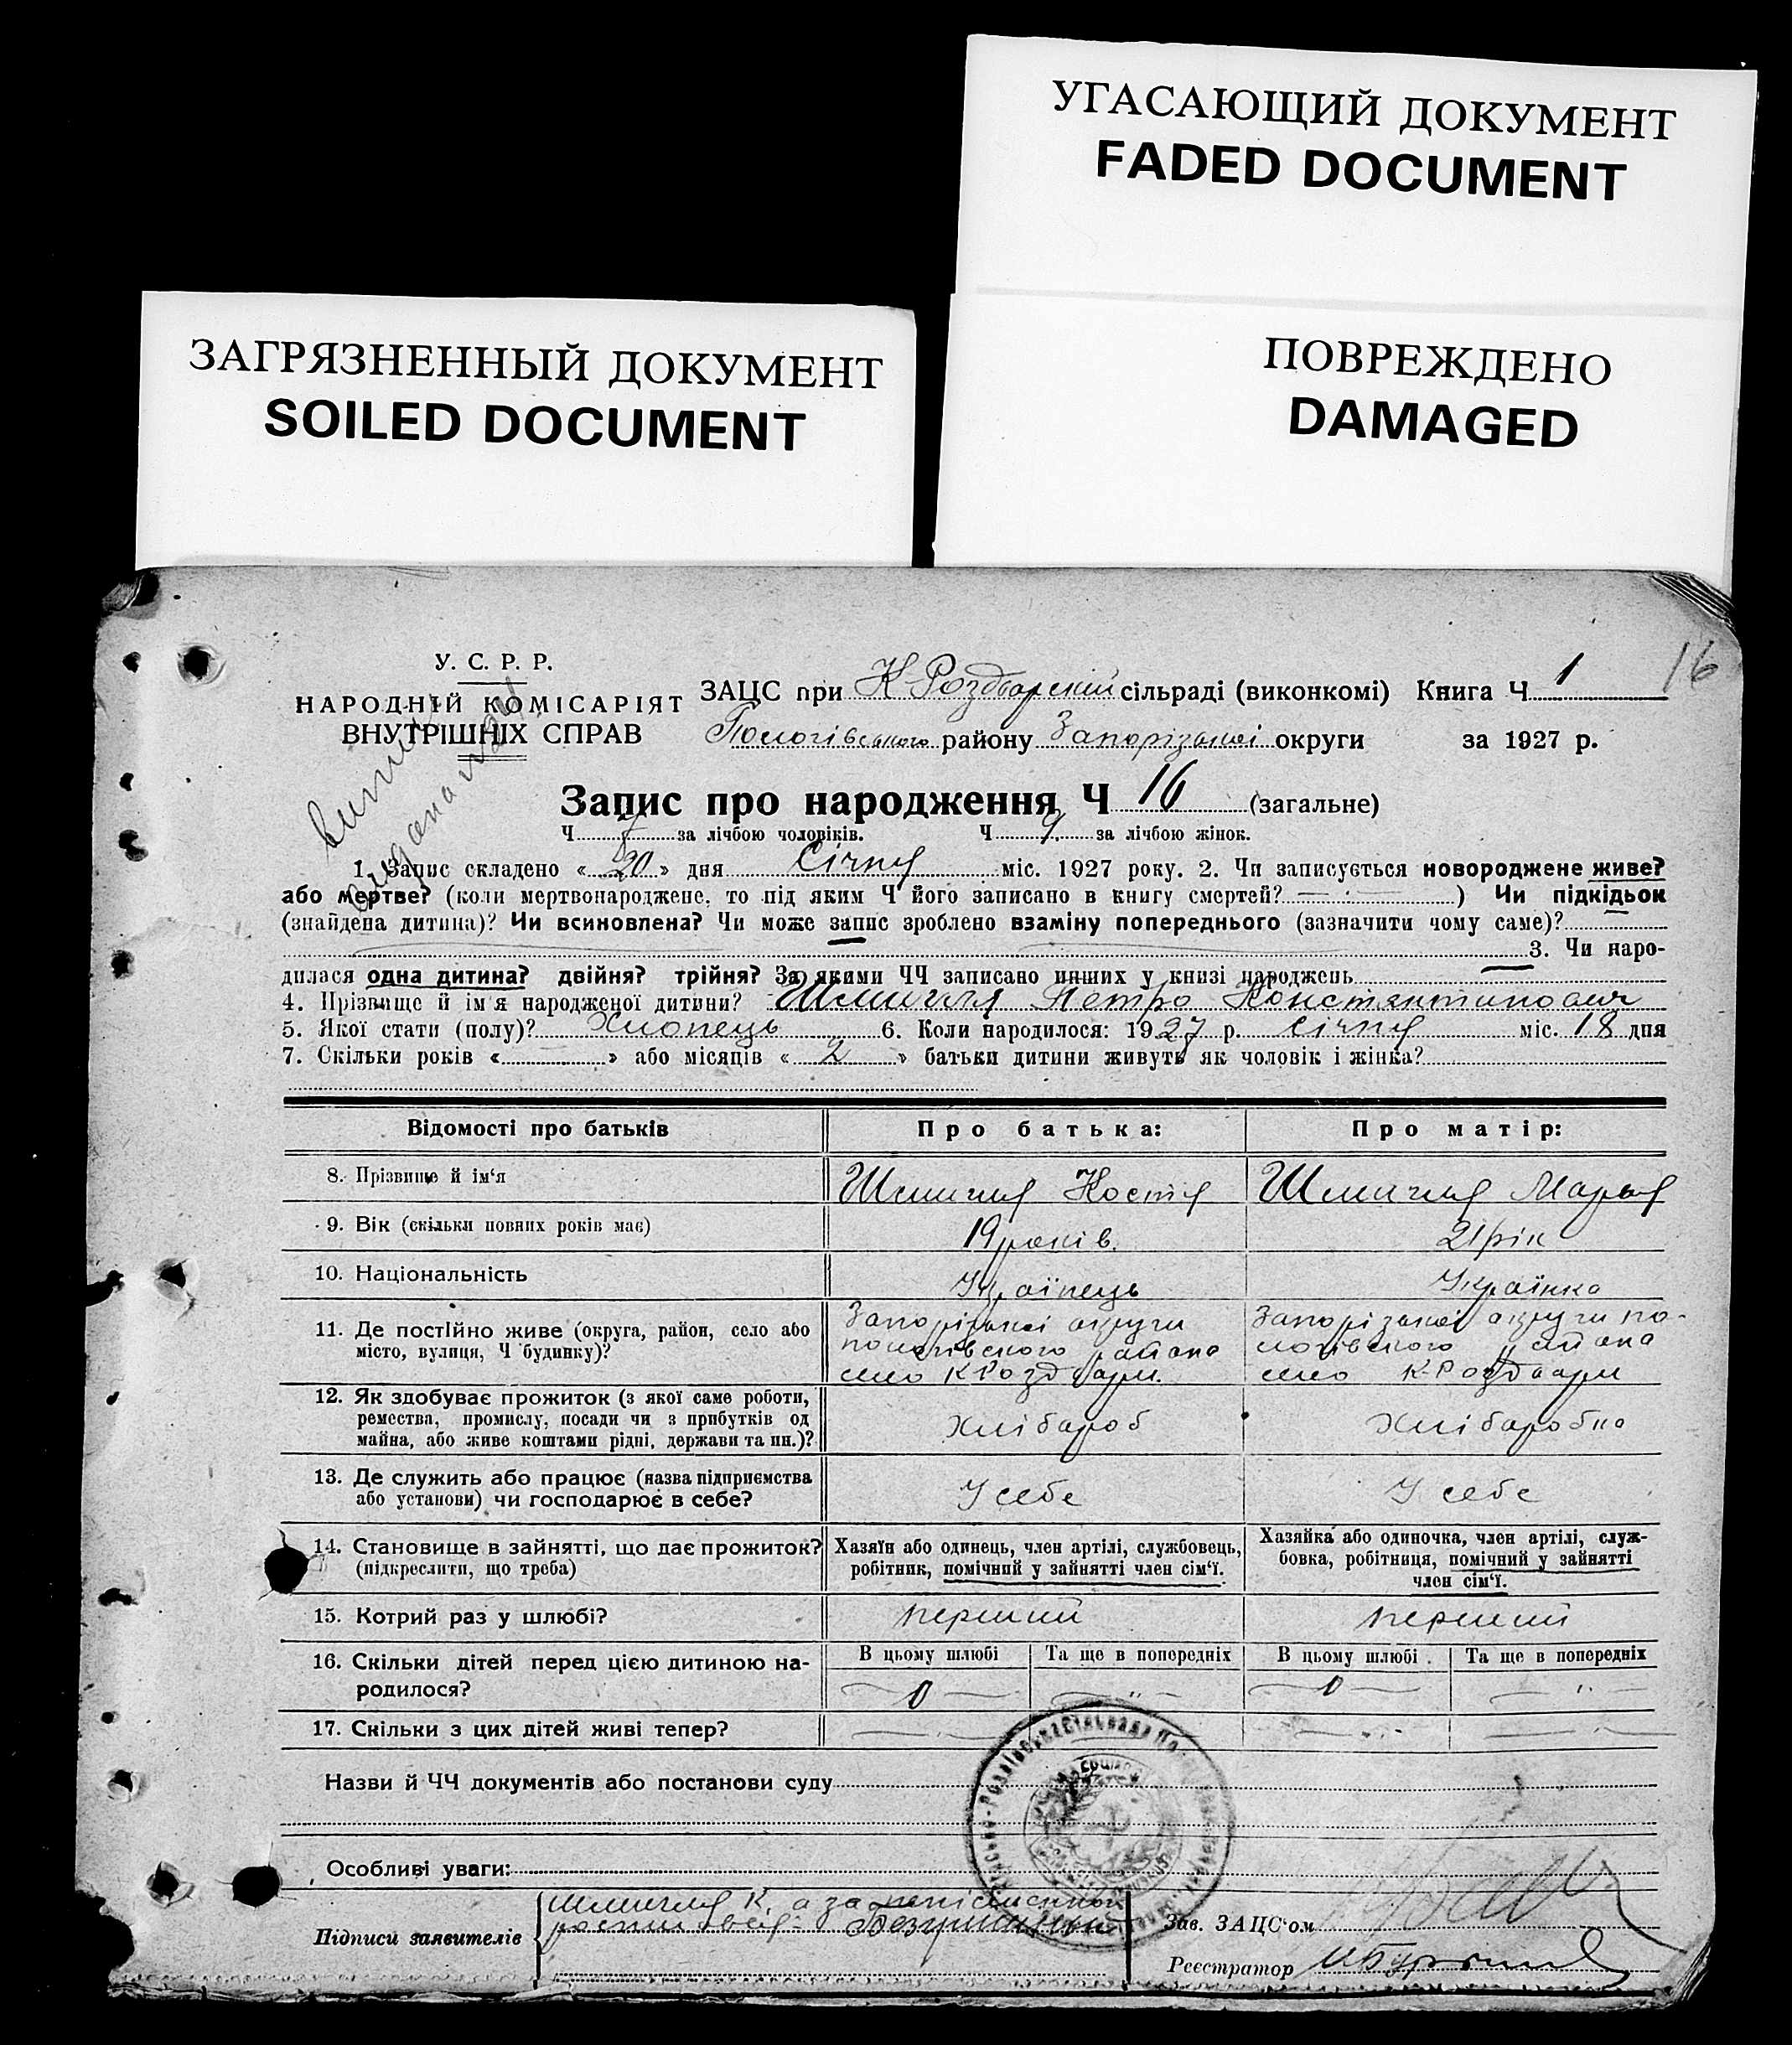 УГАСАЮЩИЙ ДОКУМЕНТ
FADED DOCUMENT
ЗАГРЯЗНЕННЫЙ ДОКУМЕНТ
SOILED DOCUMENT
ПОВРЕЖДЕНО
DAMAGED
16
У. С. Р. Р.
НАРОДНІЙ КОМІСАРІЯТ
ВНУТРІШНІХ СПРАВ
ЗАЦС при К-Роздорскій сільраді (виконкомі) Книга Ч 1
Пологівського району Запорізької округи за 1927 р.
Запис про народження Ч 16 (загальне)
Ч 7 за лічбою чоловіків. Ч 9 за лічбою жінок.
1. Запис складено « 20 » дня Січня міс. 1927 року. 2. Чи записується новороджене живе?
або мертве? (коли мертвонароджене, то під яким Ч його записано в книгу смертей? ) Чи підкідьок
(знайдена дитина)? Чи всиновлена? Чи може запис зроблено взаміну попереднього (зазначити чому саме)?
3. Чи наро-
дилася одна дитина? двійня? трійня? За якими ЧЧ записано инших у книзі народжень
4. Прізвище й ім'я народженої дитини? Петро Константинович
5. Якої стати (полу)? Хлопець 6. Коли народилося: 1927 р. січня міс. 18 дня
7. Скільки років « » або місяців « 2 » батьки дитини живуть як чоловік і жінка?
Відомості про батьків Про батька: Про матір:
8. Прізвище й ім'я Костя Марья
9. Вік (скільки повних років має) 19 років. 21 рік
10. Національність Українець Українка
11. Де постійно живе (округа, район, село або місто, вулиця, Ч будинку)?
Запорізької округи
пологівського района
село К Роздоари.
Запорізької округи по-
логівського района
село К-Роздоари
12. Як здобуває прожиток (з якої саме роботи,
ремества, промислу, посади чи з прибутків од
майна, або живе коштами рідні, держави та ин.)?
Хлібароб Хлібаробка
13. Де служить або працює (назва підприємства
або установи) чи господарює в себе?
У себе У себе
14. Становище в зайнятті, що дає прожиток?
(підкреслити, що треба)
Хазяїн або одинець, член артілі, службовець,
робітник, помічний у зайнятті член сім'ї.
Хазяйка або одиночка, член артілі, служ-
бовка, робітниця, помічний у зайнятті
член сім'ї.
15. Котрий раз у шлюбі? перший перший
16. Скільки дітей перед цією дитиною на-
родилося?
В цьому шлюбі Та ще в попередніх В цьому шлюбі Та ще в попередніх
0 0
17. Скільки з цих дітей живі тепер?
Назви й ЧЧ документів або постанови суду
Особливі уваги:
Підписи заявителів
Зав. ЗАЦС'ом
Реєстратор